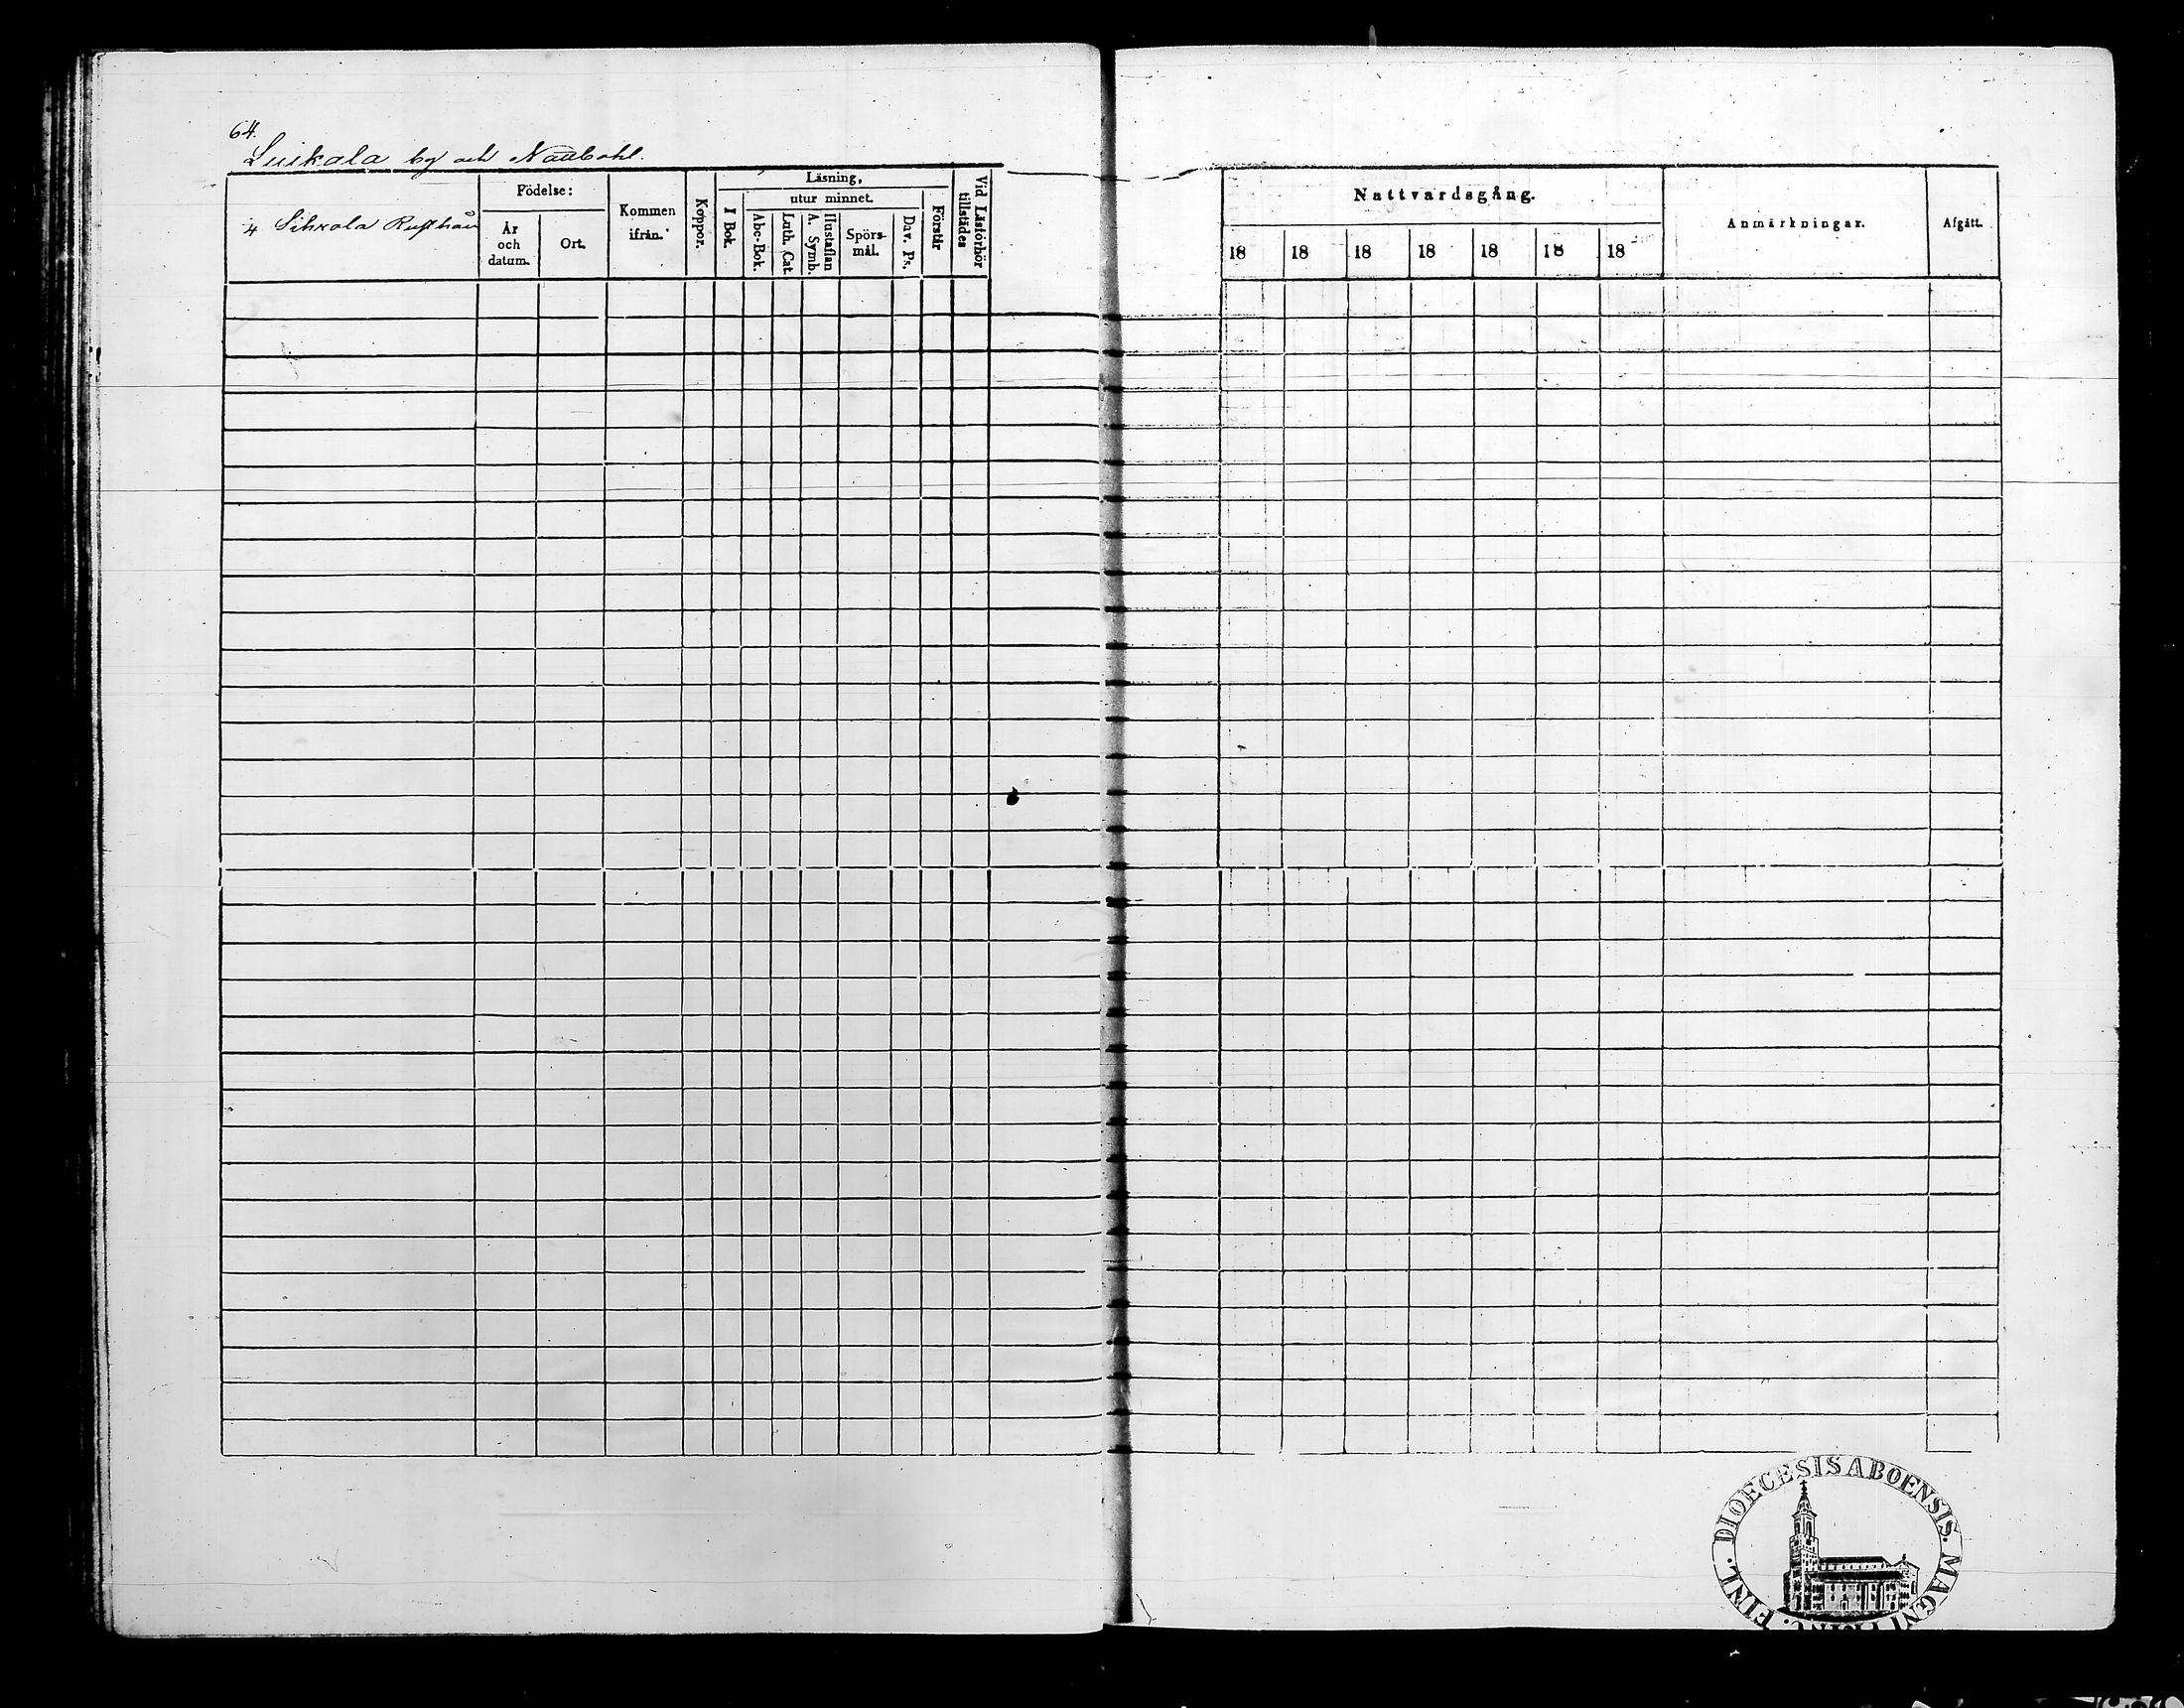 64.
Luikala by och Naubohl.
4 Sihvola Rusthåll
Födelse:
År och datum.
Ort.
Kommen ifrån.
Koppor.
Läsning,
utur minnet.
I Bok.
Abc-Bok.
Luth. Cat.
A. Symb.
Hustaflan
Spörs-mål.
Dav. Ps.
Förstår
Vid Läsförhör tillstädes
Nattvardsgång.
18 18 18 18 18 18 18
Anmärkningar.
Afgått.
DIOECESIS ABOENSIS. MAGNI PRINC. FINL.